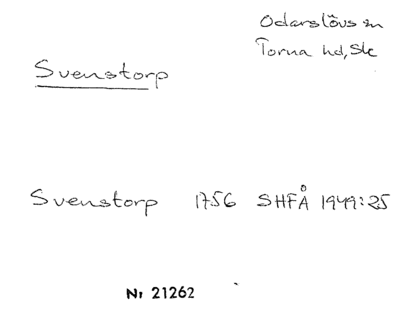 Odarslövs sn
Torna hd, Sk
Svenstorp
Svenstorp 1756 SHFÅ 1949:25
Nr 21262